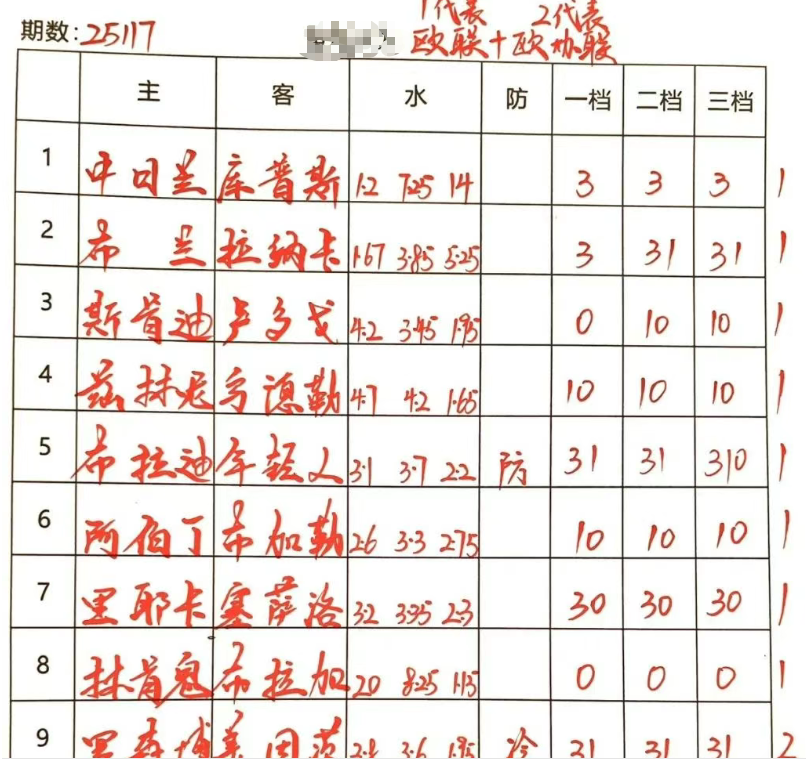 1代表 2代表
期数:25117 欧联+欧协联
主 客 水 防 一档 二档 三档
1 中日兰 库普斯 1.2 7.25 14 3 3 3 1
2 布兰 拉纳卡 1.67 3.85 5.25 3 31 31 1
3 斯肯迪 卢多戈 4.2 3.45 1.95 0 10 10 1
4 兹林尼 亏德勒 4.7 4.2 1.65 10 10 10 1
5 布拉迪 年轻人 3.1 3.7 2.2 防 31 31 310 1
6 阿伯丁 布加勒 2.6 3.3 2.75 10 10 10 1
7 里耶卡 塞萨洛 3.2 3.35 2.3 30 30 30 1
8 林肯鬼 布拉加 20 8.25 1.13 0 0 0 1
9 罗森博 美因茨 3.6 1.95 冷 31 31 31 2